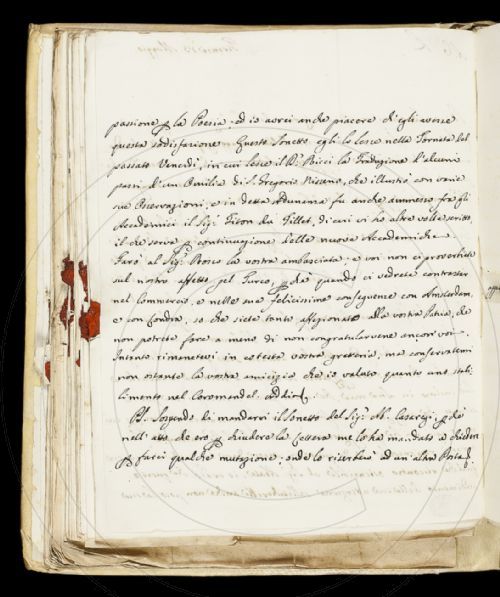 passione p la Poesia ed io avrei anche piacere ch'egli avesse
questa sodisfazione. Questo Sonetto egli lo lesse nella Tornata del
passato Venerdì, in cui lesse il D. Ricci la Traduzione d'alcuni
passi d'un Omilia di S. Gregorio Nisseno, che illustrò con varie
sue Osservazioni, e in detta Adunanza fu anche ammesso fra gli
Accademici il Sig. Titon du Tillet, di cui vi ho altre volte scritto,
il che serva p continuazione delle nuove Accademiche.
Farò al Sig. Bosco la vostra ambasciata; e voi non ci proverbiate
sul nostro affetto pel Turco, p chè quando ci vedrete contrastar
nel Commercio, e nelle sue felicissime conseguenze con Amsterdam,
e con Londra, so che siete tanto affezionato alla vostra Patria, che
non potrete fare a meno di non congratularvene ancor voi.
Intanto rimanetevi in cotesta vostra grecheria, ma conservatemi
non ostante la vostra amicizia che io valuto quanto uno stabi-
limento nel Coromandel. addio
PS. Sospendo di mandarvi il Sonetto del Sig. Ab. Casaregi, p chè
nell' atto che ero p chiudere la lettera me lo ha mandato a chieder
p farci qualche mutazione; onde lo riserberò ad un'altra Posta.